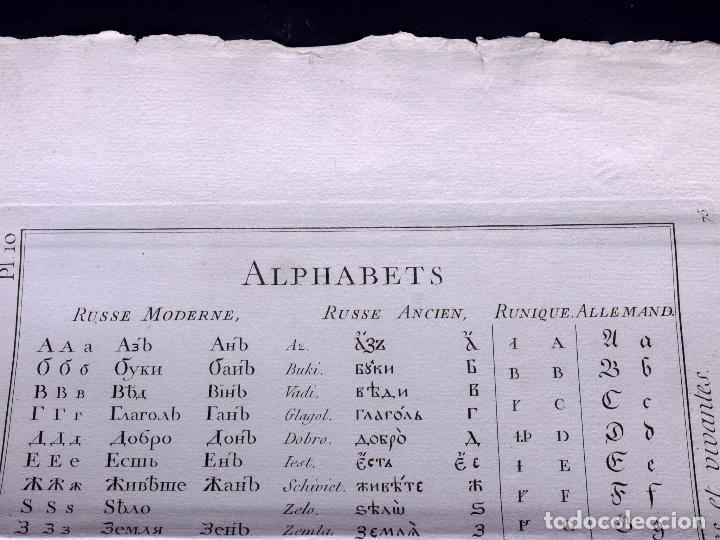 76
Pl 10
ALPHABETS
RUSSE MODERNE, RUSSE ANCIEN, RUNIQUE. ALLEMAND.
А А а Азъ Анъ Az. А҆́зъ А҆́ ᛆ A A a
Б б б буки банъ Buki. бꙋки Б B B B b
В В в Вѣд Вінъ Vadi. вѣди В ᚴ C C c
Г Г г Глаголь Ганъ Glagol. глаго́ль Г D D d
Д Д д Добро Донъ Dobro. добро̀ Д E E e
Е Е е Есть Енъ Iest. Є҆́сть Є҆́ ᚠ F F f
Ж Ж ж Живѣте Жанъ Schiviet. живѣ́те Ж
Ѕ Ѕ ѕ Ѕѣло Zelo. ѕѣлѡ̀ Ѕ
З З з Земля Зенъ Zemla. земля̀ З
et vivantes.
todocoleccion
todocoleccion.net